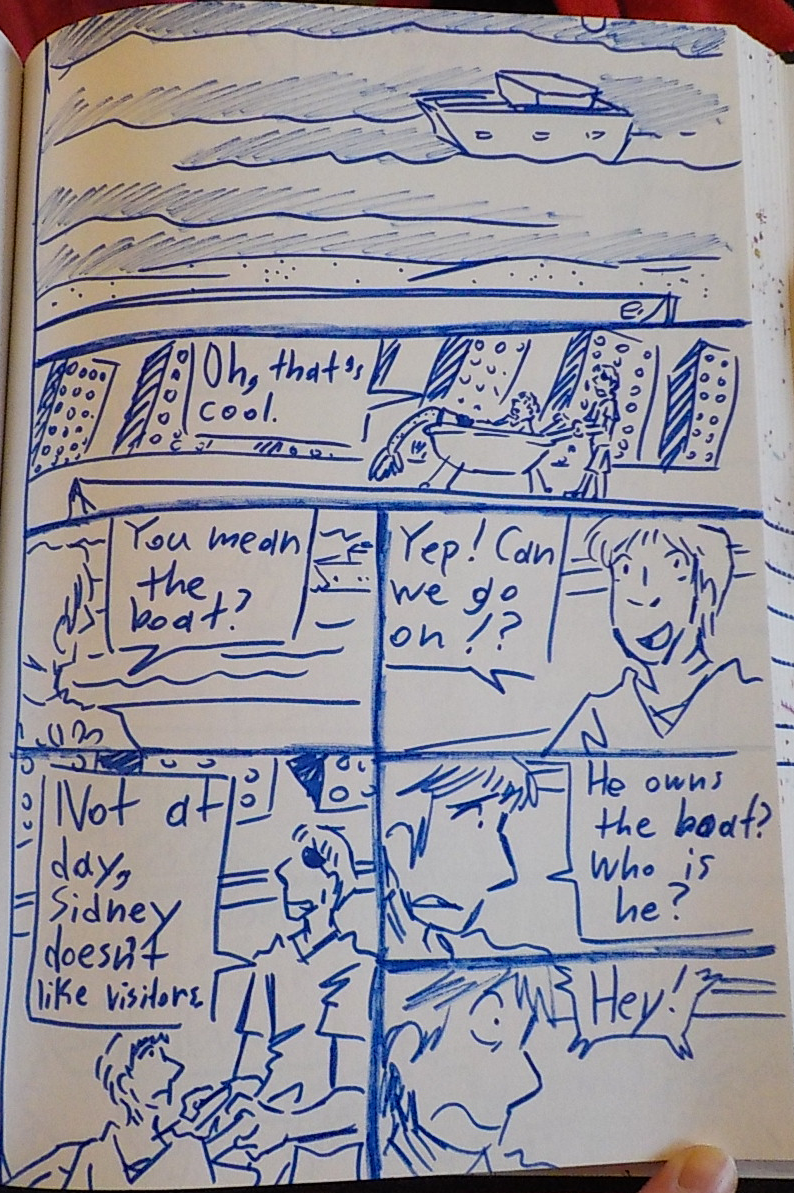 Oh, that's
cool.
You mean
the
boat?
Yep! Can
we go
on!?
Not at
day,
Sidney
doesn't
like visitors
He owns
the boat?
Who is
he?
Hey!